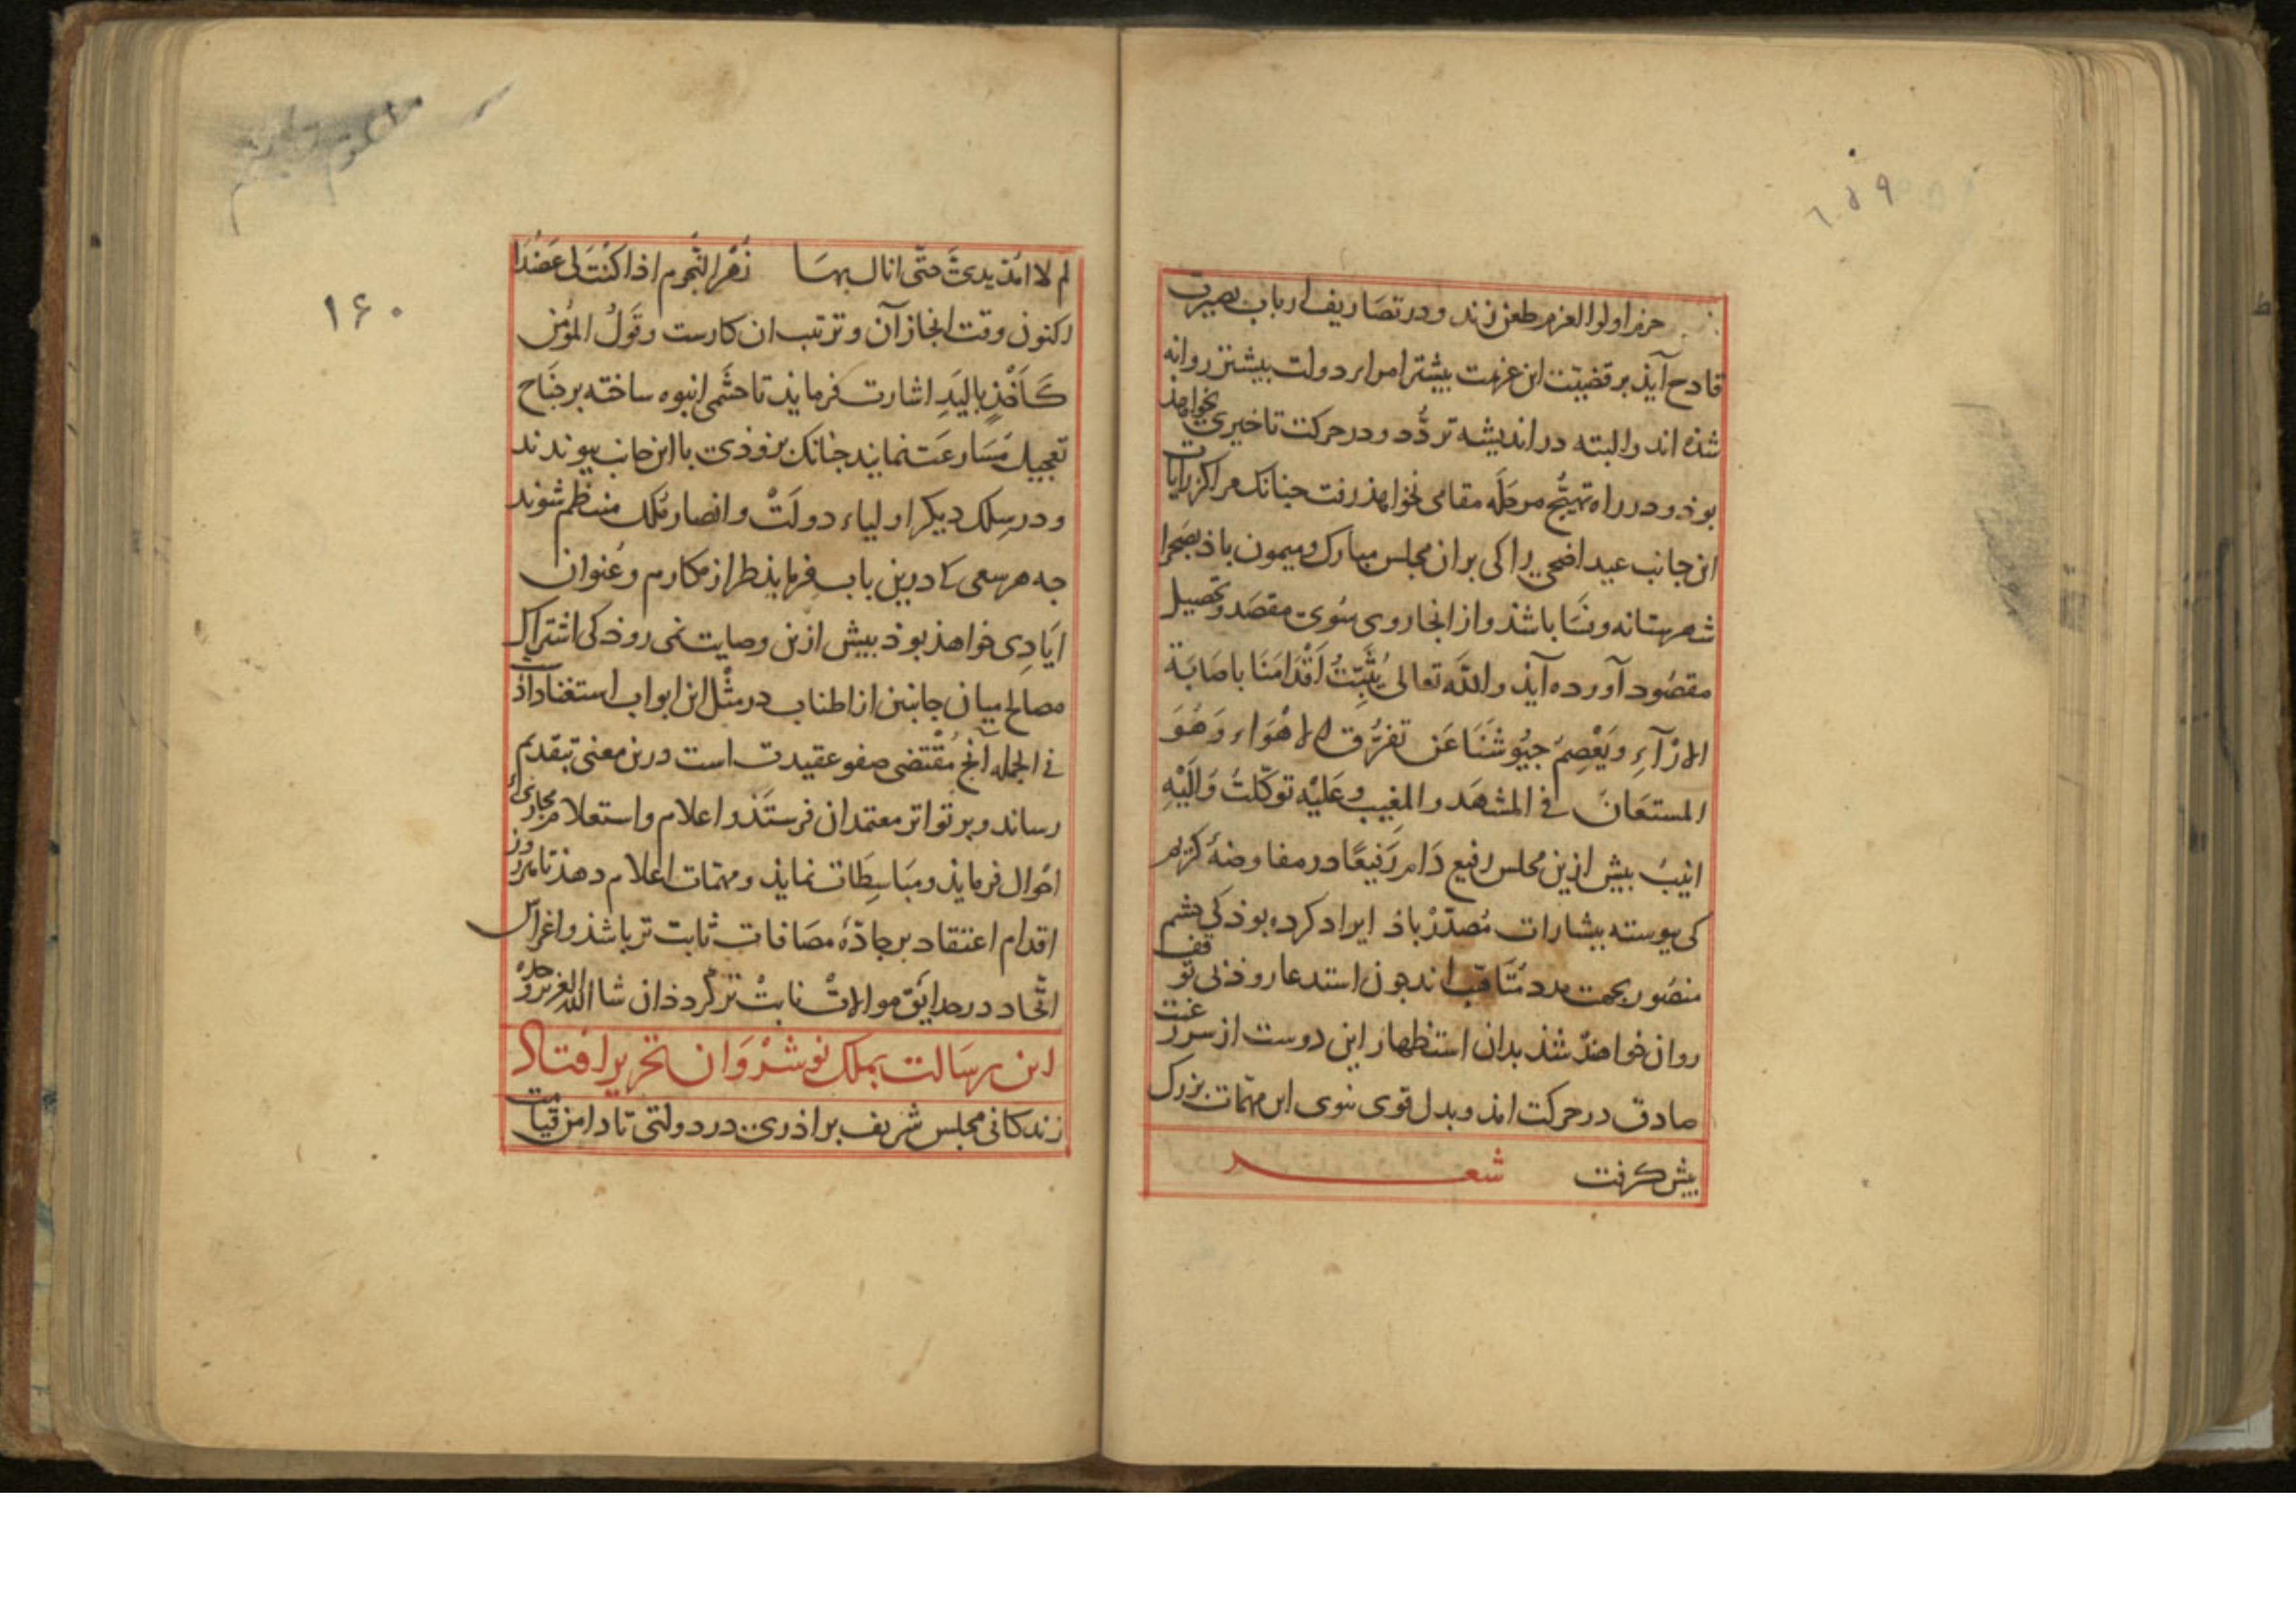 حزم اولوا العزم طعن زند و در تصاریف ارباب بصیرت
قادح آیذ بر قضیت این عزیمت بیشتر امراء دولت بیشتر روانه
شذه اند و البته در اندیشه تردُّد و در حرکت تاخیری نخواهذ
بوذ و در راه تهیّج مرحَله مقامی نخواهذ رفت جنانک مراکز رایات
این جانب عید اضحی را کی بر ان مجلس مبارک و میمون باذ بصَحرا
شهرستانه و نَسَا باشذ و از انجا روی سُوی مقصَد و تحصیل
مقصُود آورده آیذ و الله تعالی یُثَبِّتُ اَقْدَامَنَا باصَابَة
الارْآءِ وَیَعْصِمُ جیُوشَنَا عَن تفرُّق الاهْوَاء وَهُوَ
المستَعَانُ فی المشهَد و المغیب وعَلَیْه توکّلتُ وَالَیْهِ
انیبُ بیش ازین مجلس رفیع دَام رَفیعًا در مفاوضهٔ کریم
کی بیوسته ببشارات مُصدّرْ باذ ایراد کرده بوذ کی حشم
منصُور بجهت مدد مُتَاهّب اند جون استدعا روذ بی توقف
روان خواهندْ شذ بدان استظهار این دوست از سر رغبت
صادق در حرکت امذ و بدل قوی سُوی این مهمّات بزرک
بیش کرفت شعر
۱۵۹
لم لا امُدّ یدیَّ حتّی انال بهَا زُهْرَ النّجوم اذا کُنْتَ لی عَضُدَا
اکنون وقت انجاز آن و ترتیب ان کارست وقَولُ المؤمن
کَاَخْذٍ بالیَدِ اشارت فرمایذ تا حشَمی انبوه ساخته بر جنَاح
تعجیل مُسَارعَت نمایند جنانک بزوذی با این جانب بیوندند
و در سِلک دیکر اولیاء دولَتْ و انصار مُلک منتظم شوند
جه هر سعی کا درین باب فرمایذ طراز مکارم و عُنوان
ایَادِی خواهذ بوذ بیش ازین وصایت نمی روذ کی اشتراک
مصالح میان جانبین از اطناب در مثْل این ابواب استغنا داذ
فی الجمله آنج مُقْتَضی صفو عقیدت است درین معنی بتقدیم
رساند و بر تواتر معتمدان فرستَذ و اعلام و استعلام مجاری
احْوال فرمایذ و مبَاسِطَات نمایذ و مهمّات اعلام دهذ تا هر روز
اقدام اعتقاد بر جادّهٔ مصَافات ثابت تر باشذ و اغراس
اتّحاد در حدایق موالاتْ نابتْ تر کردذ ان شا الله العزیز وحده
این رسَالت بملک نوشروان تحریر افتاد
زندکانی مجلس شریف براذری در دولتی تا دامن قیامت
۱۶۰